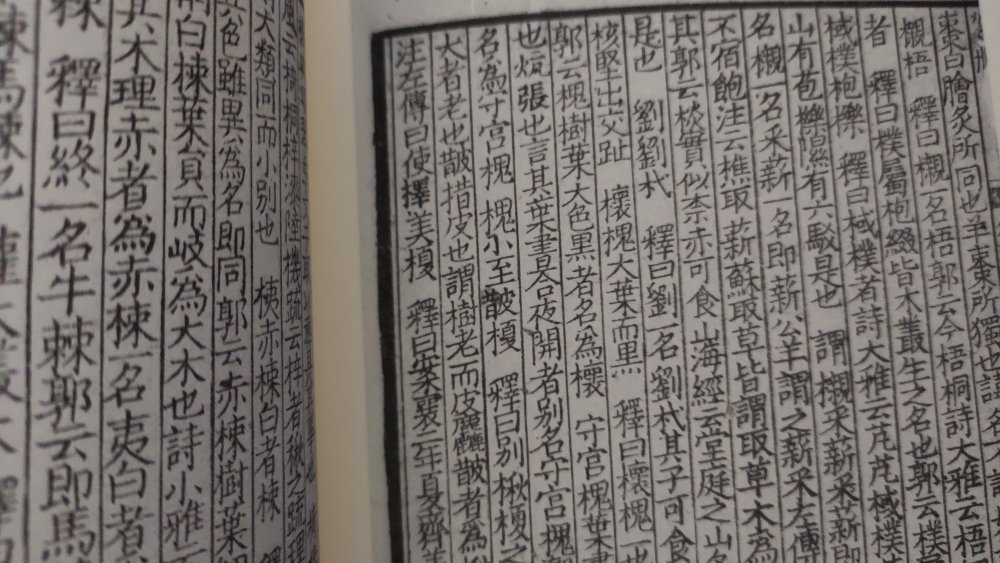 棗曰膾炙所同也羊棗所獨也
櫬梧　釋曰櫬一名梧郭云今梧桐詩大雅云梧
者　釋曰樸屬枹綴皆木叢生之名也郭云樸
棫樸枹櫟　釋曰棫樸者詩大雅云芃芃棫樸
山有苞櫟隰有六駮是也　謂櫬采薪采薪即
名櫬一名采薪一名即薪公羊謂之薪采左傳
不宿飽注云樵取薪蘇取草皆謂取草木為
其郭云棪實似柰赤可食山海經云堂庭之山名
是也　劉劉杙　釋曰劉一名劉杙其子可食
核堅出交趾　櫰槐大葉而黑　釋曰櫰槐一也
郭云槐樹葉大色黑者名為櫰　守宮槐葉晝
也炕張也言其葉晝日合夜開者別名守宮槐
名為守宮槐　槐小至皵榎　釋曰別楸榎之
大者老也皵措皮也謂樹老而皮麤皵者為
注左傳曰使擇美榎　釋曰案襄二年夏齊姜
大類同而小別也　桋赤楝白者楝　釋
其色雖異為名即同郭云赤楝樹葉
白楝葉員而岐為大木也詩小雅
其木理赤者為赤楝一名夷白者
釋曰終一名牛棘郭云即馬